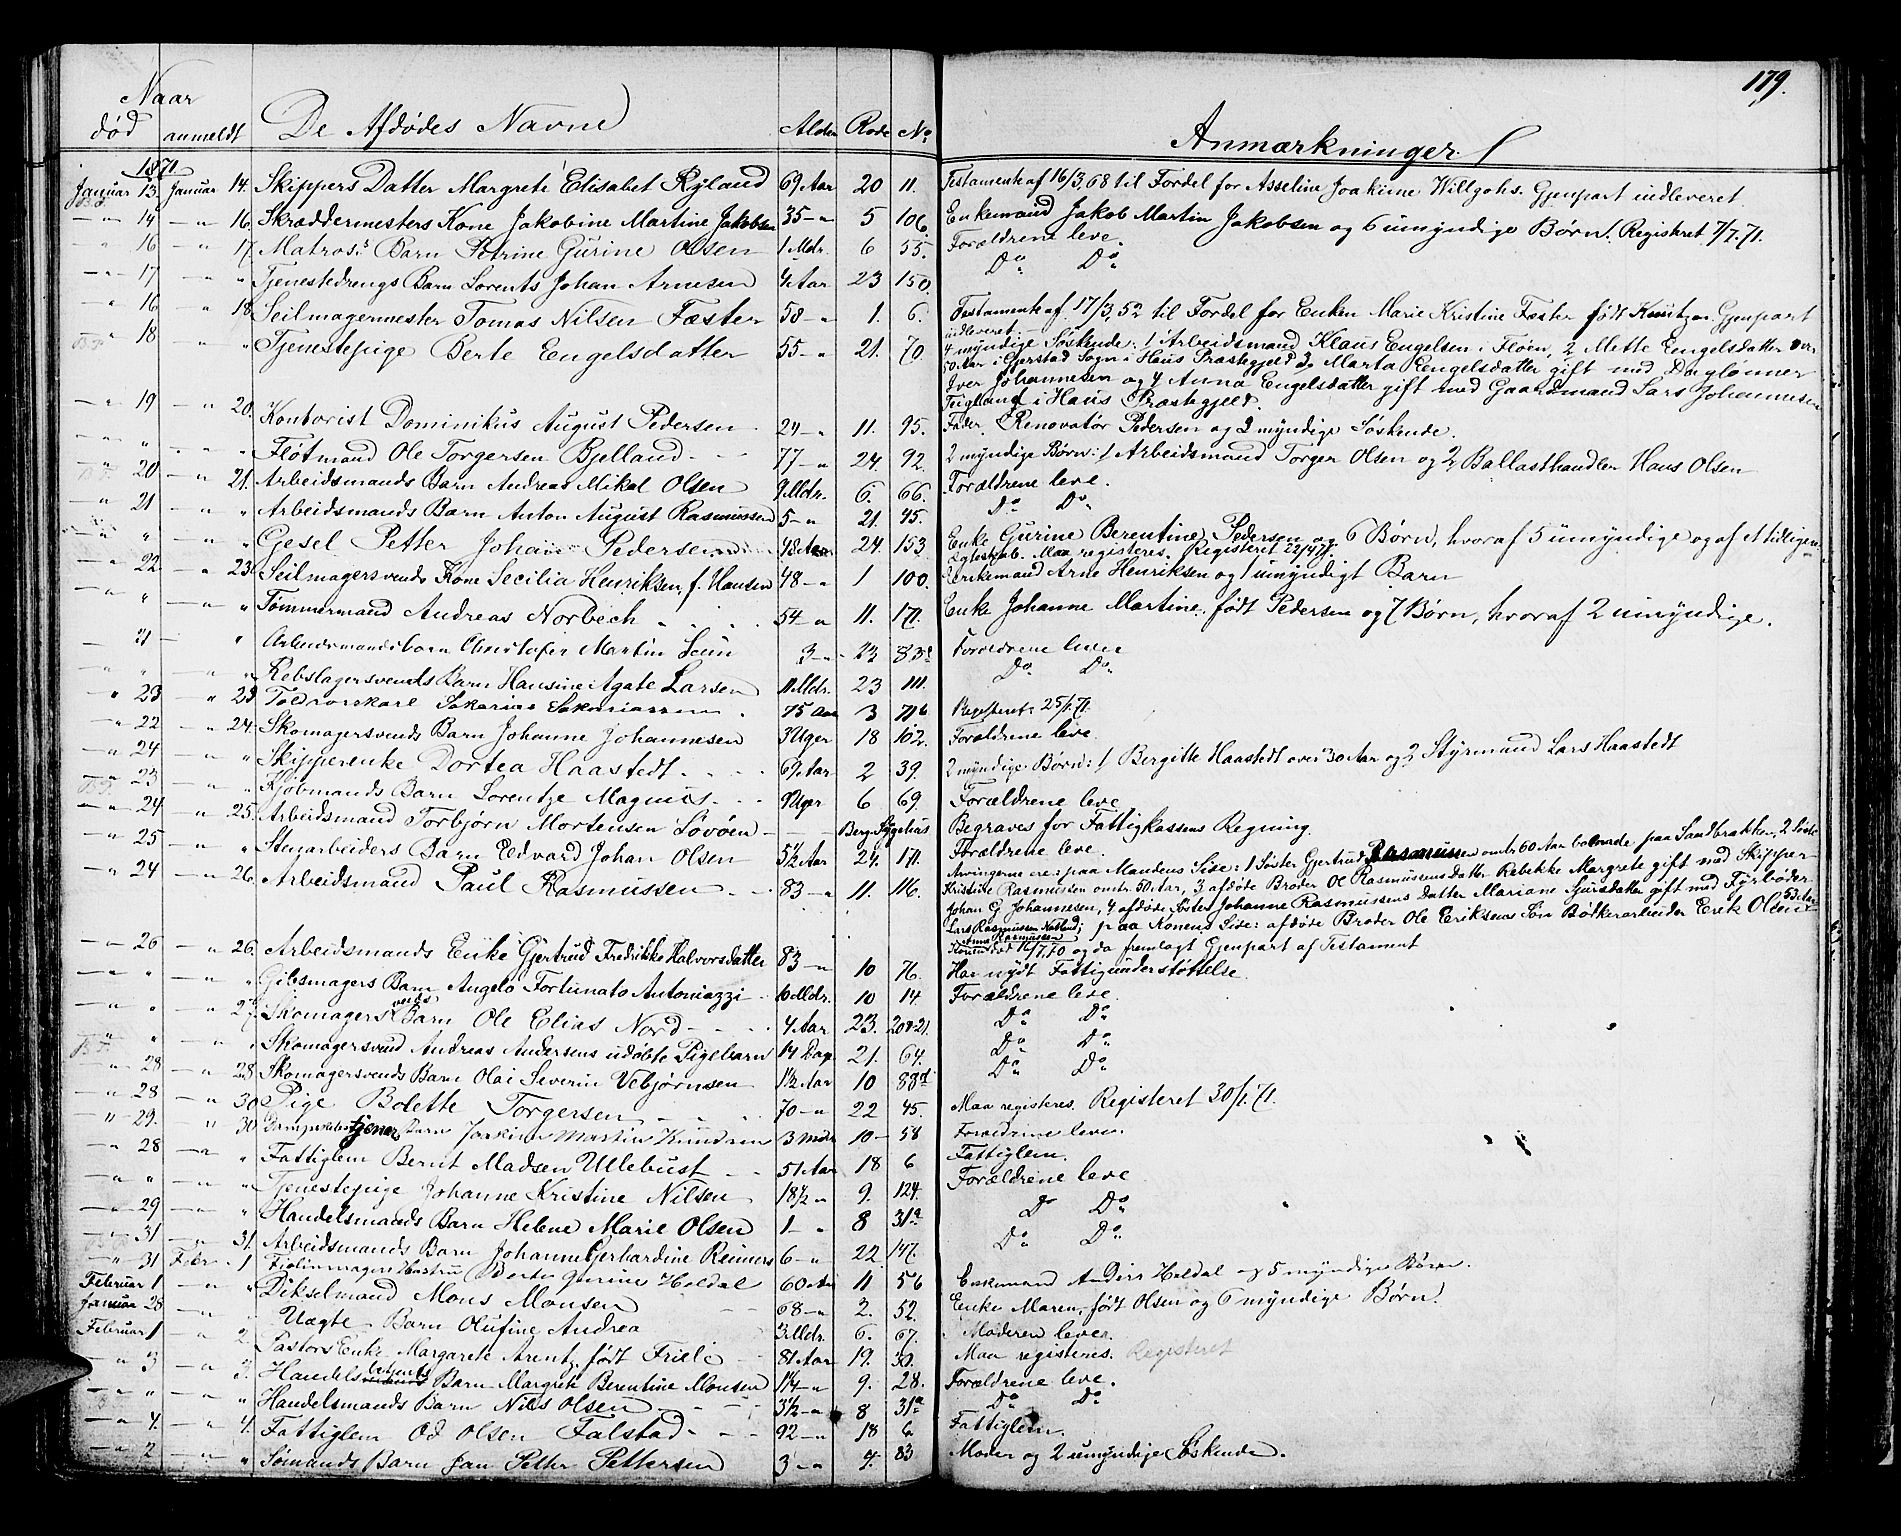 179.
Naar
død anmeldt De Afdødes Navne Alder Rode No. Anmærkninger.
1871
Januar 13. Januar 14. Skippers Datter Margrete Elisabet Ryland 69 Aar 20 11. Testamente af 16/3, 68 til Fordel for Asseline Joakime Willgohs. Gjenpart udleveret.
— " 14 — " 16. Skræddermesters Kone Jakobine Martine Jakobsen 35 — " 5 106. Enkemand Jakob Martin Jakobsen og 6 umyndige Børn. Registeret 7/7.71.
— " 16 " 17. Matros: Barn Petrine Gurine Olsen 1 Mdr. 6 55. Forældrene leve.
— " 17 " " Tjenestedrengs Barn Lorents Johan Arnesen 4 Aar 23 150. Do Do
— " 16 — " 18. Seilmagermester Tomas Nilsen Fæster 58 — " 1. 6. Testamente af 17/3, 52 til Fordel for Enken Marie Kristine Fæster født Küntzer Gjenpart udleveret.
" 18 — " " Tjenestepige Berte Engelsdatter 55 — " 21. 70. 4 myndige Søskende: 1 Arbeidsmand Klaus Engelsen i Fløen, 2 Mette Engelsdatter over
50 Aar i Gjerstad Sogn i Haus Præstegjeld, 3 Marta Engelsdatter gift med Dagleønner
Iver Johannesen og 4 Anna Engelsdatter gift med Gaardmand Lars Johannesen
Teigland i Haus Præstegjeld.
— " 19 — " 20. Kontorist Dominikus August Pedersen 24 — " 11. 95. Fader, Renovatør Pedersen og 3 myndige Søskende.
— " " — " " Fløtmand Ole Torgersen Bjelland 77 — " 24. 92. 2 myndige Børn: 1 Arbeidsmand Torger Olsen og 2 Ballasthandler Hans Olsen
" 20 — " 21. Arbeidsmands Barn Andreas Mikal Olsen 9 Mdr. 6. 66. Forældrene leve.
" 21 — " " Arbeidsmands Barn Anton August Rasmussen 5 — " 21. 45. Do Do
— " " — " " Gesel Petter Johan Pedersen 48 Aar 24. 153. Enke Gurine Berentine Pedersen og 6 Børn, hvoraf 5 umyndige og af et tidligere
Egteskab. Maa registeres. Registeret 22/4 71.
— " 22 — " 23. Seilmagersvends Kone Secilia Henriksen f. Hansen 48 — " 1 100. Enkemand Arne Henriksen og 1 umyndigt Barn
— " " — " " Tømmermand Andreas Norbech 54 — " 11. 171. Enke Johanne Martine, født Pedersen og 7 Børn, hvoraf 2 umyndige.
— " 21 — " Arbeidsmandsbarn Christofer Martin 3 — " 23 83. Forældrene lever
— " " " " Rebslagersvends Barn Hansine Agate Larsen 11 Mdr. 23 111. Do Do
" 23 " 23 Toldrorskarl Sakarias Sakariassen 75 Aar 3 71 b Registeret 25/1.71.
— " 22 — " 24. Skomagersvends Barn Johanne Johannesen 3 Uger 18 102. Forældrene leve.
— " 24 — " " Skipperenke Dortea Haastedt 69 Aar 2 39. 2 myndige Børn: 1 Bergitte Haastedt over 30 Aar og 2 Styrmand Lars Haastedt
— " 23 — " " Kjøbmands Barn Lorentze Magnus 9 Uger 6 69. Forældrene leve
— " 24 — " 25. Arbeidsmand Torbjørn Mortensen Løvøen — Berg. Sygehus Begraves for Fattigkassens Regning.
— " 25 — " " Stenarbeiders Barn Edvard Johan Olsen 5½ Aar 24. 171. Forældrene leve.
— " 24 — " 26. Arbeidsmand Paul Rasmussen 83 — " 11. 116. Arvingerne ere: paa Mandens Side: 1 Søster Gjertrud Rasmussen omtr. 60 Aar boende paa Sandbrakken, 2 Søster
Kristine Rasmussen omtr. 50 Aar, 3 afdøde Broder Ol Rasmussens Datter Rebekke Margrete gift med Skipper
Johan G Johannesen, 4 afdøde Søster Johanne Rasmussens Datter Mariane Sjursdatter gift med Fyrbøder
Lars Rasmussen Natland; paa Konens Side: afdøde Broder Ole Eriksens Søn Bødkerarbeider Erik Olsen 53 Aar
Anna Rasmussen
Konen død 16/7, 70 og da fremlagt Gjenpart af Testament
— " 26 — " 26. Arbeidsmands Enke Gjertrud Fredrikke Halvorsdatter 83 — " 10 76. Har nydt Fattigunderstøttelse.
— " " — " " Gibsmagers Barn Angelo Fortunato Antoniazzi 10 Mdr. 10 14. Forældrene leve.
— " " — " 27. Skomagersvends Barn Ole Elias Nord 4 Aar 23. 20 & 21. Do Do
" " — " " Skomagersvend Andreas Andersens udøbte Pigebarn 14 Dag. 21. 64. Do Do
— " 28 — " 28. Skomagersvends Barn Olai Severin Vebjørnsen 1½ Aar 10 88 d Do Do
— " 28 — " 30. Pige Bolette Torgersen 70 — " 22 45. Maa registeres. Registeret 30/1.71.
" 29. " 30. tjener Barn Joakim Martin Knudsen 3 Mdr 10 — 58 Forældrene lever.
— " 28 — " " Fattiglem Bernt Madsen Ullebust 51 Aar 18 6 Fattiglem.
— " " — " " Tjenestepige Johanne Kristine Nilsen 18½ " 9. 124. Forældrene leve
— " 29 — " " Handelsmands Barn Helene Marie Olsen 1 — " 8 31 a Do Do
— " 31 — " 31. Arbeidsmands Barn Johanne Gerhardine Reimers 6 — " 22. 147. Do Do
— " 31 Febr. 1 Fiolinmagers Hustru Berte Gurine Heldal 60 Aar 11 56 Enkemand Anders Heldal og 5 myndige Børn.
Februar 1 — " " Dikselmand Mons Monsen 68 — " 2. 52. Enke Maren, født Olsen og 6 myndige Børn.
Januar 28 — " " Uægte Barn Olufine Andrea 3 Mdr. 6. 67. Moderen lever.
Februar 1 — " 2. Pastors Enke Margarete Arentz, født Friele 81 Aar 19. 30. Maa registeres. Registeret
— " 3 — " 3. Handelsbetjents Barn Margrete Berentine Monsen 1¼ — " 9. 28. Forældrene leve.
— " " — " " Handelsmands Barn Nils Olsen 3½ — " 8 31 a Do Do
— " 4. — " 4. Fattiglem Od Olsen Falstad 92 — " 18 6 Fattiglem.
— " 2 — " " Sømands Barn Jan Petter Pettersen 3 — " 4. 83 Moder og 2 umyndige Søskende.